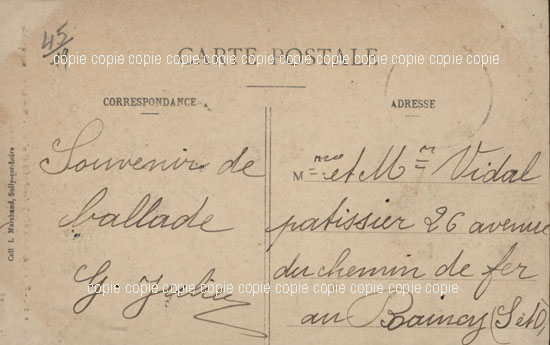 45
CARTE POSTALE
copie copie copie copie copie copie copie copie copie copie
CORRESPONDANCE
Souvenir de
ballade
Coll L. Marchand, Sully-sur-Loire
ADRESSE
Mme et Mr Vidal
patissier 26 avenue
du chemin de fer
au Raincy (S et O)
copie copie copie copie copie copie copie copie copie copie